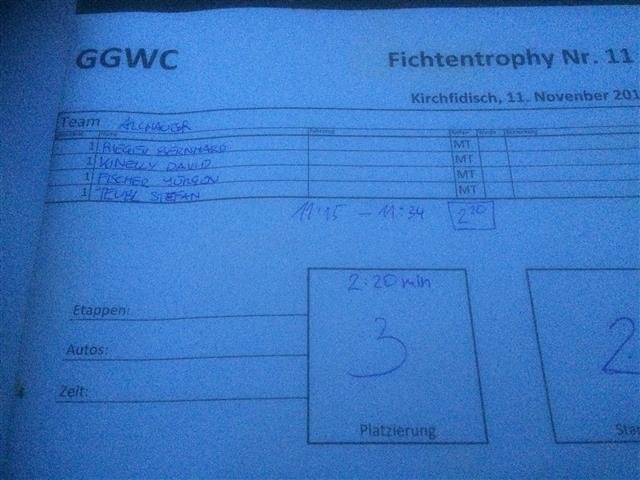 GGWC Fichtentrophy Nr. 11
Kirchfidisch, 11. Novenber 201
Team
1 RIEGLER BERNHARD MT
1 KINELLY DAVID MT
1 FISCHER JÜRGEN MT
1 TEUBL STEFAN MT
11:15 - 11:34 2 20
2:20 min
Etappen:
3 2
Autos:
Zeit:
Platzierung Sta